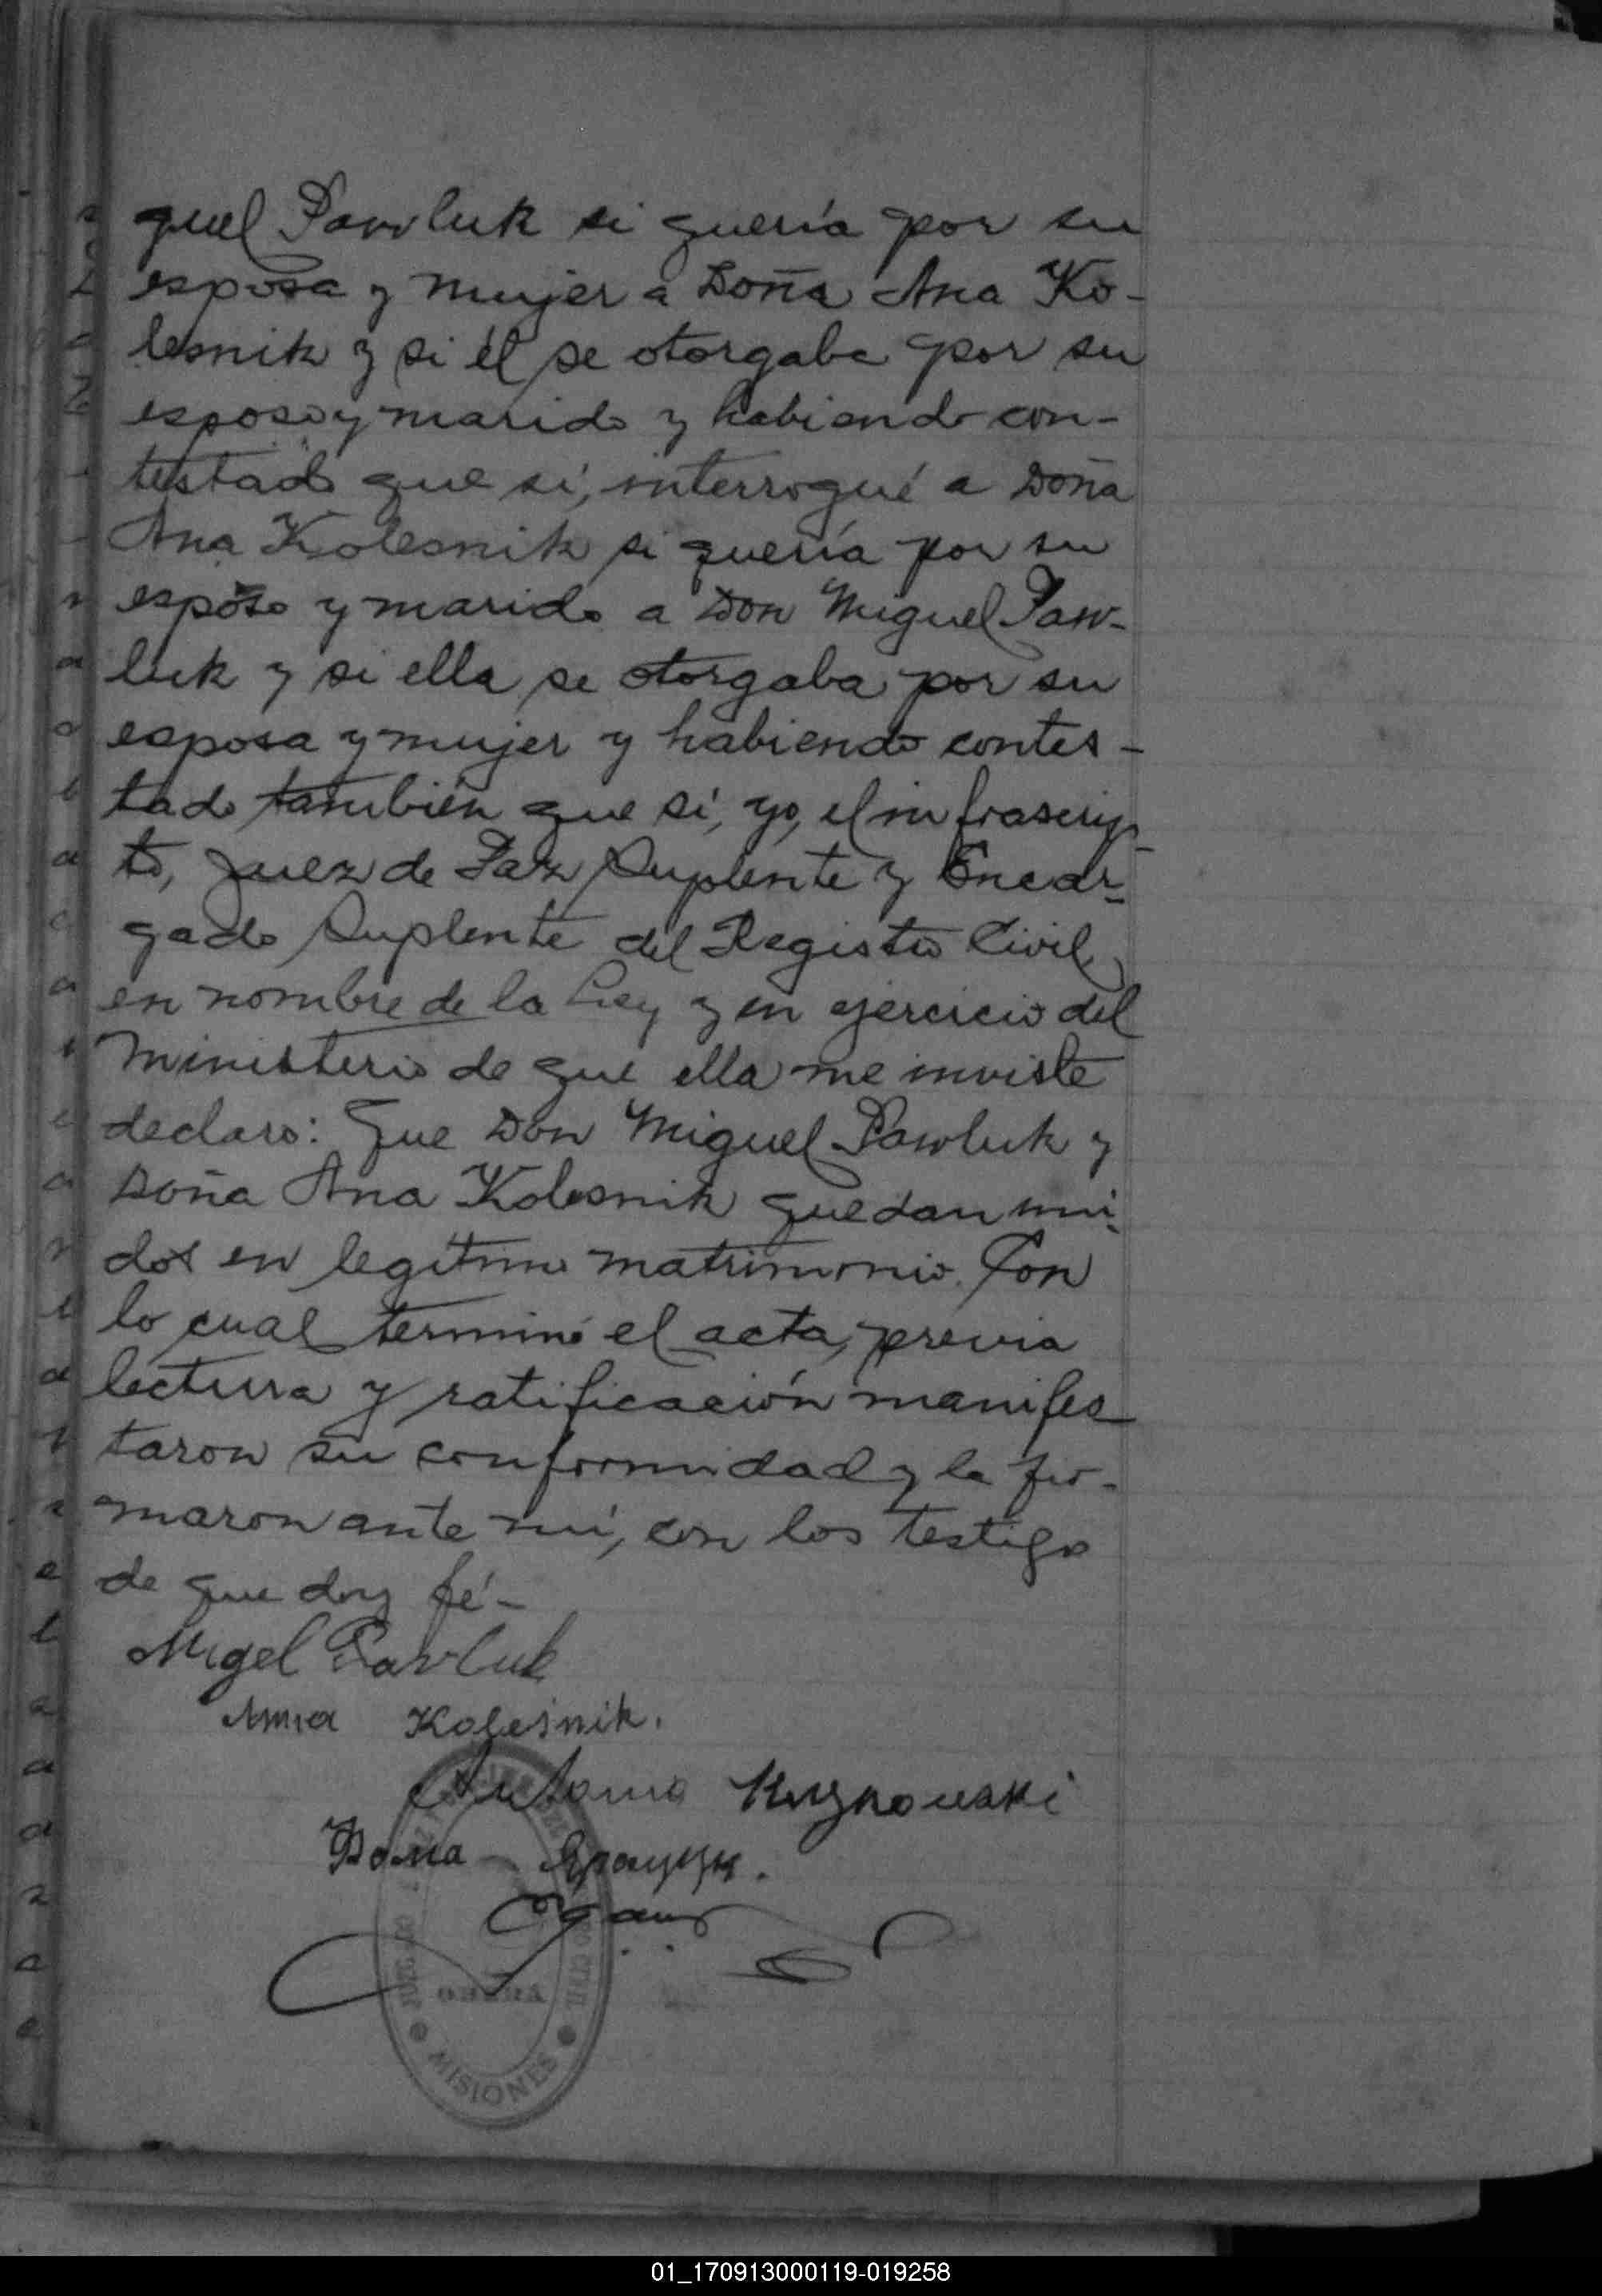 guel Pawluk si quería por su
esposa y mujer a Doña Ana Ko-
lesnik y si él se otorgaba por su
esposo y marido y habiendo con-
testado que sí, interrogué a Doña
Ana Kolesnik si quería por su
esposo y marido a Don Miguel Paw-
luk y si ella se otorgaba por su
esposa y mujer y habiendo contes-
tado también que sí, yo, el infrascrip-
to, Juez de Paz Suplente y Encar-
gado Suplente del Registro Civil,
en nombre de la Ley y en ejercicio del
Ministerio de que ella me inviste
declaro: Que Don Miguel Pawluk y
Doña Ana Kolesnik quedan uni-
dos en legítimo matrimonio. Con
lo cual terminó el acta, previa
lectura y ratificación manifes-
taron su conformidad y la fir-
maron ante mí, con los testigo
de que doy fé.-
Migel Pawluk
Anna Kolesnik.
Antonio
Фома
OBERÁ
MISIONES
01_170913000119-019258